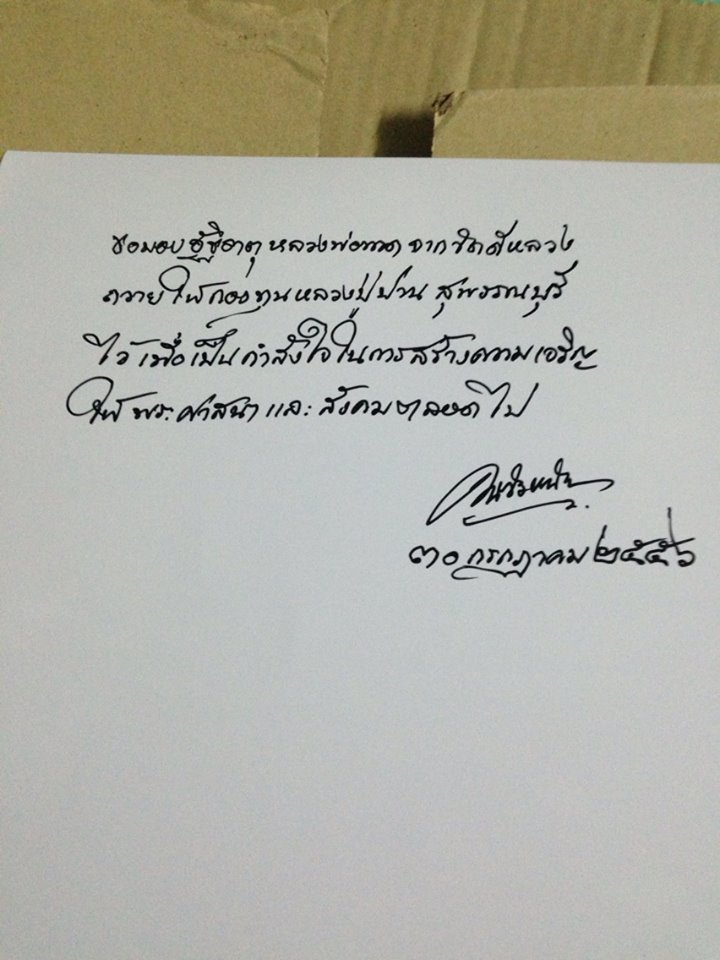 ขอมอบอัฐิธาตุหลวงพ่อทวด จาก
ถวายให้กองทุนหลวงปู่ปาน สุพรรณบุรี
ไว้เพื่อเป็นกำลังใจในการสร้างความเจริญ
ให้พระศาสนาและสังคมตลอดไป
๓๐ กรกฎาคม ๒๕๕๖